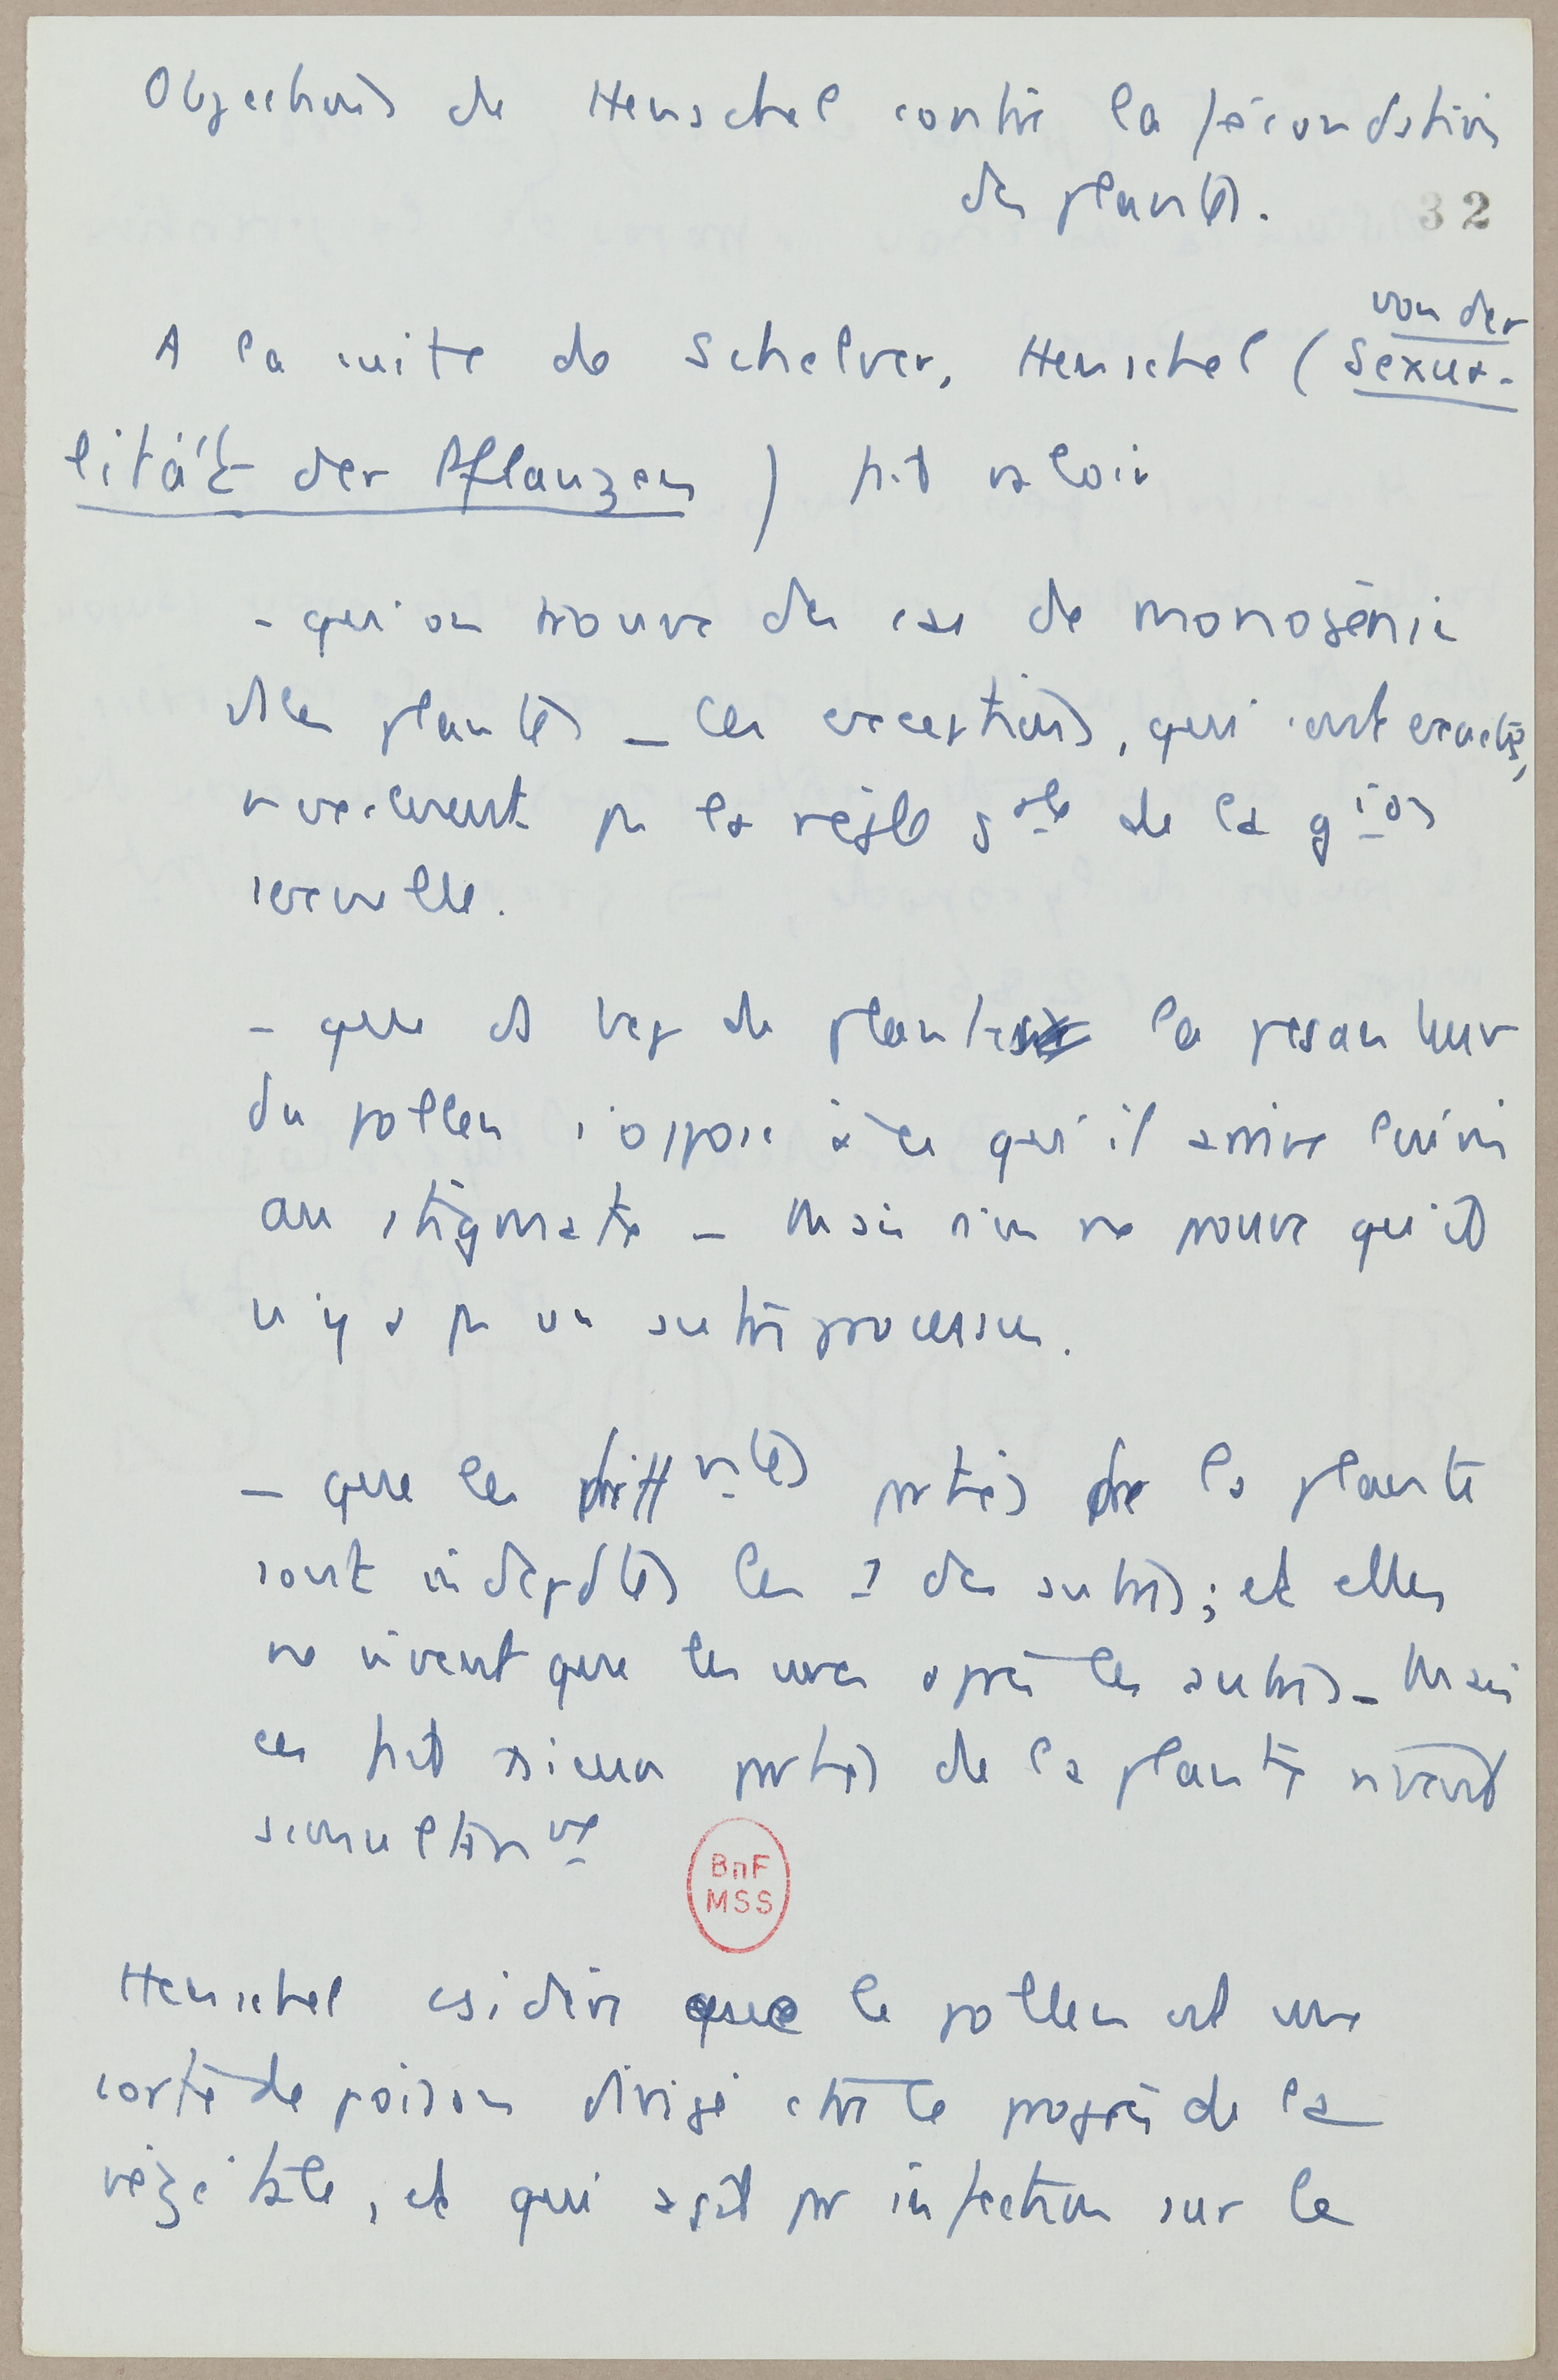 Objections de Henschel contre la fécondation
des plantes.
32
A la suite de Schelver, Henschel (von der Sexua-
lität der Pflanzen) fait valoir
- qu'on trouve des cas de monogénie
ds les plantes _ Ces exceptions, qui sont exactes,
n'excluent pas la règle gale de la gion
sexuelle.
- que ds bcp de plantes la pesanteur
du pollen s'oppose à ce qu'il arrive lui-même
au stigmate _ Mais rien ne prouve qu'il
n'y a pas un autre processus.
- que les différentes parties de la plante
sont indépdtes les 1 des autres ; et elles
ne vivent que les unes après les autres _ Mais
en fait plusieurs parties de la plante vivent
simultanmt
BnF
MSS
Henschel csidère que le pollen est une
sorte de poison dirigé ctre le progrès de la
végétale, et qui agit par infection sur le